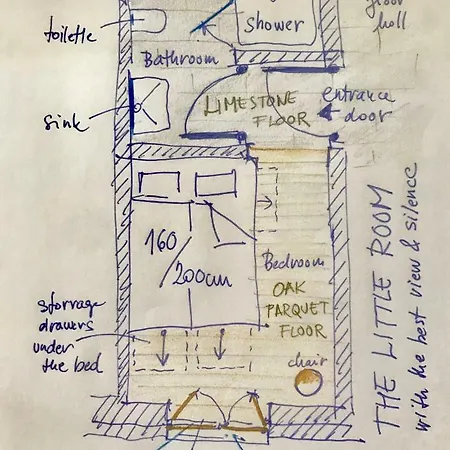 floor
hall
toilette
Shower
Bathroom
sink
LIMESTONE
FLOOR
entrance
door
160
200cm
Bedroom
OAK
PARQUET
FLOOR
storrage
drawers
under
the bed
chair
THE LITTLE ROOM
with the best view & silence